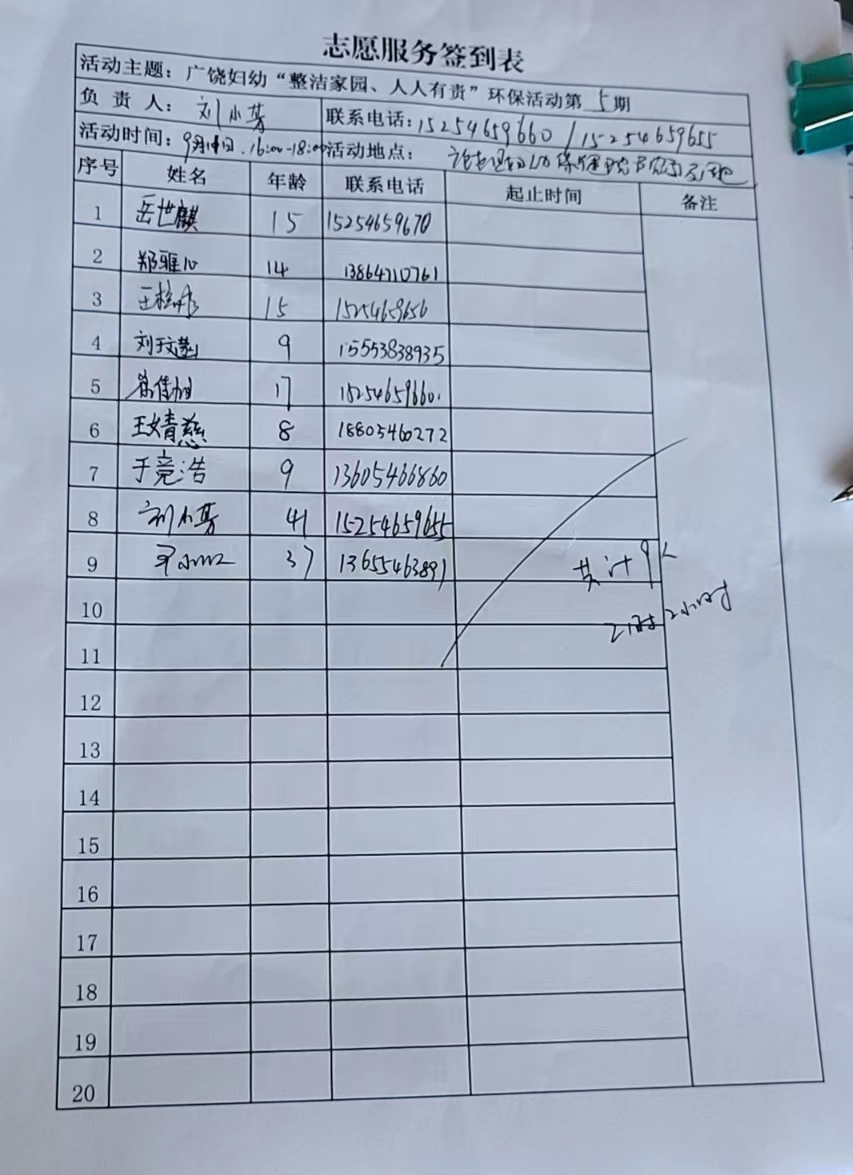 志愿服务签到表
活动主题：广饶妇幼“整洁家园、人人有责”环保活动第 5 期
负 责 人： 刘小芳 联系电话：15254659660 / 15254659655
活动时间：9月 日.16:00-18:00 活动地点：
序号 姓名 年龄 联系电话 起止时间 备注
1 岳世麒 15 15254659670
2 郑雅心 14 13864710761
3 15 15254659656
4 刘玟 9 15553838935
5 17 15254659660
6 王婧慈 8 18805460272
7 于竞浩 9 13605466860
8 刘小芳 41 15254659655
9 37 13655463891
共计9人
2小时
10
11
12
13
14
15
16
17
18
19
20